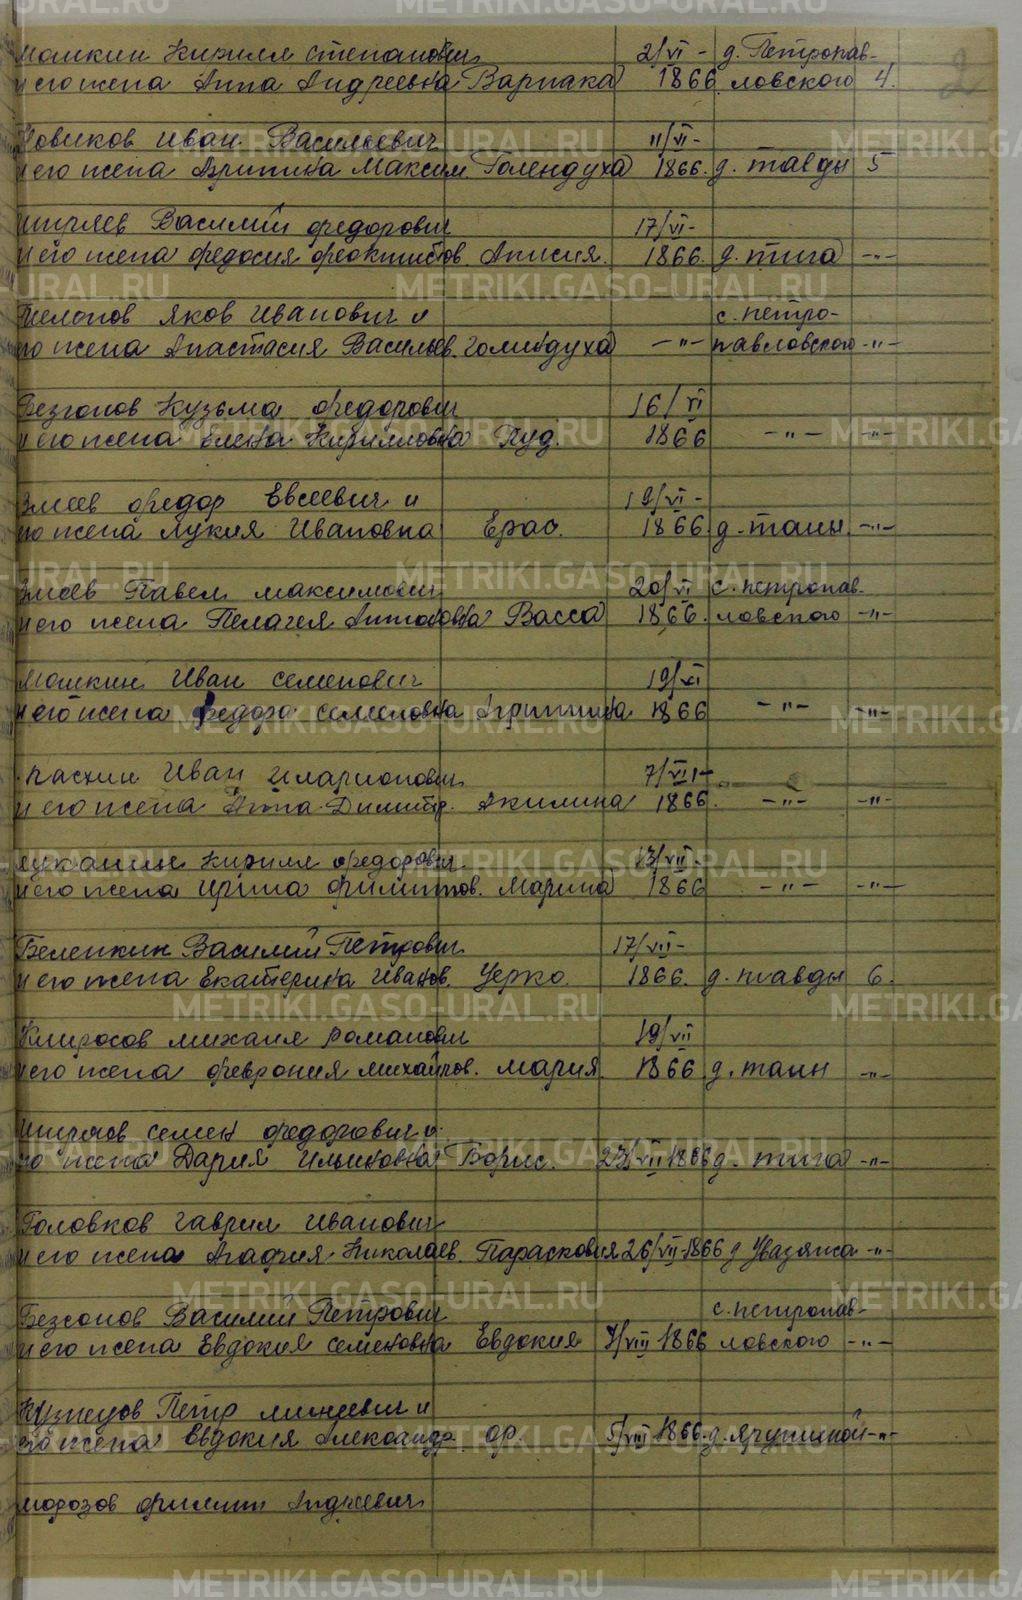 Мошкин Кирилл Степанович 2/VI - д. Петропав-
и его жена Анна Андреевна Варнака 1866 ловского 4.
Новиков Иван Васильевич 11/VI -
и его жена Агрипина Максим. Голендуха 1866. д. Тавды 5
Ширяев Василий Федорович 17/VI -
и его жена Федосия Феоктистов. Анисия. 1866. д. Тига -"-
Яков Иванович и с. Петро-
его жена Анастасия Васильев. Голиндуха -"- павловского -"-
Безсонов Кузьма Федорович 16/VI
и его жена Елена Кирилловна Иуд. 1866 -"- -"-
Змеев Федор Евсеевич и 19/VI -
его жена Лукия Ивановна Ерао. 1866 д. Таны. -"-
Змеев Павел Максимович 20/VI с. Петропав-
и его жена Пелагея Антоновна Васса 1866. ловского -"-
Мошкин Иван Семенович 19/VI
и его жена Федора Семеновна Агрипина 1866 -"- -"-
Иван Иларионович 7/VII -
и его жена Анна Димитр. Акилина 1866. -"- -"-
Луканин Кирилл Федорович 13/VII -
и его жена Ирина Филиппов. Марина 1866 -"- -"-
Беленкин Василий Петрович 17/VII -
и его жена Екатерина Иванов. Церко. 1866. д. Тавды 6.
Михаил Романович 19/VII
и его жена Феврония Михайлов. Мария. 1866 д. Таин -"-
Ширяев Семен Федорович и
его жена Дария Ильиновна Борис. 23/VII 1866 д. Тига -"-
Головков Гаврил Иванович
и его жена Агафия Николаев. Парасковия 26/VII-1866 д. Увазяма -"-
Безсонов Василий Петрович с. Петропав-
и его жена Евдокия Семеновна Евдокия 7/VIII 1866 ловского -"-
Кузнецов Петр и
его жена Евдокия Александр. Ф. 5/VIII 1866. д. -"-
Морозов Филипп Андреевич
METRIKI.GASO-URAL.RU